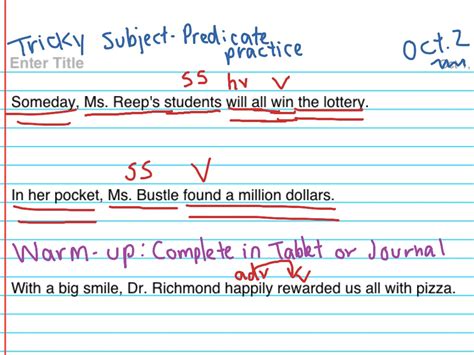 Tricky Subject-Predicate practice Oct. 2
Enter Title
SS hv V
Someday, Ms. Reep's students will all win the lottery.
SS V
In her pocket, Ms. Bustle found a million dollars.
Warm-up: Complete in Tablet or Journal
adv V
With a big smile, Dr. Richmond happily rewarded us all with pizza.